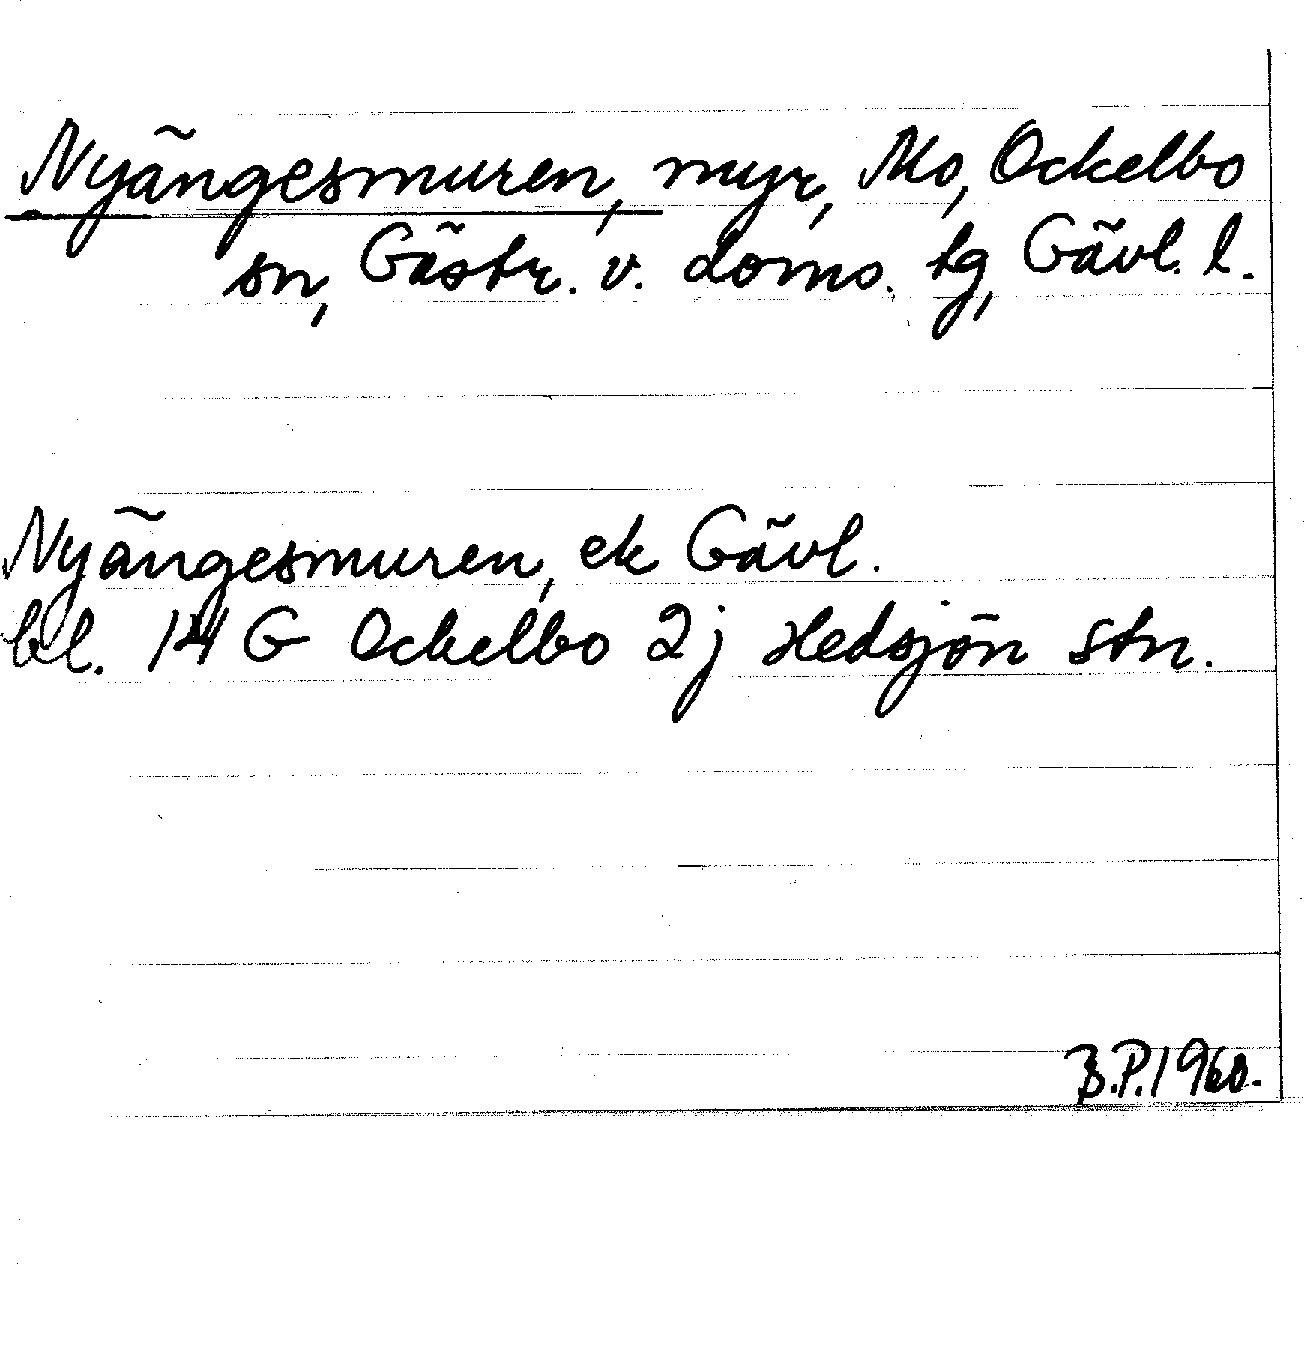 Nyängesmuren, myr, Mo, Ockelbo
sn, Gästr. v. doms. tg, Gävl. l.
Nyängesmuren, ek Gävl.
bl. 14 G Ockelbo 2j Hedsjön stn.
B.P. 1960.